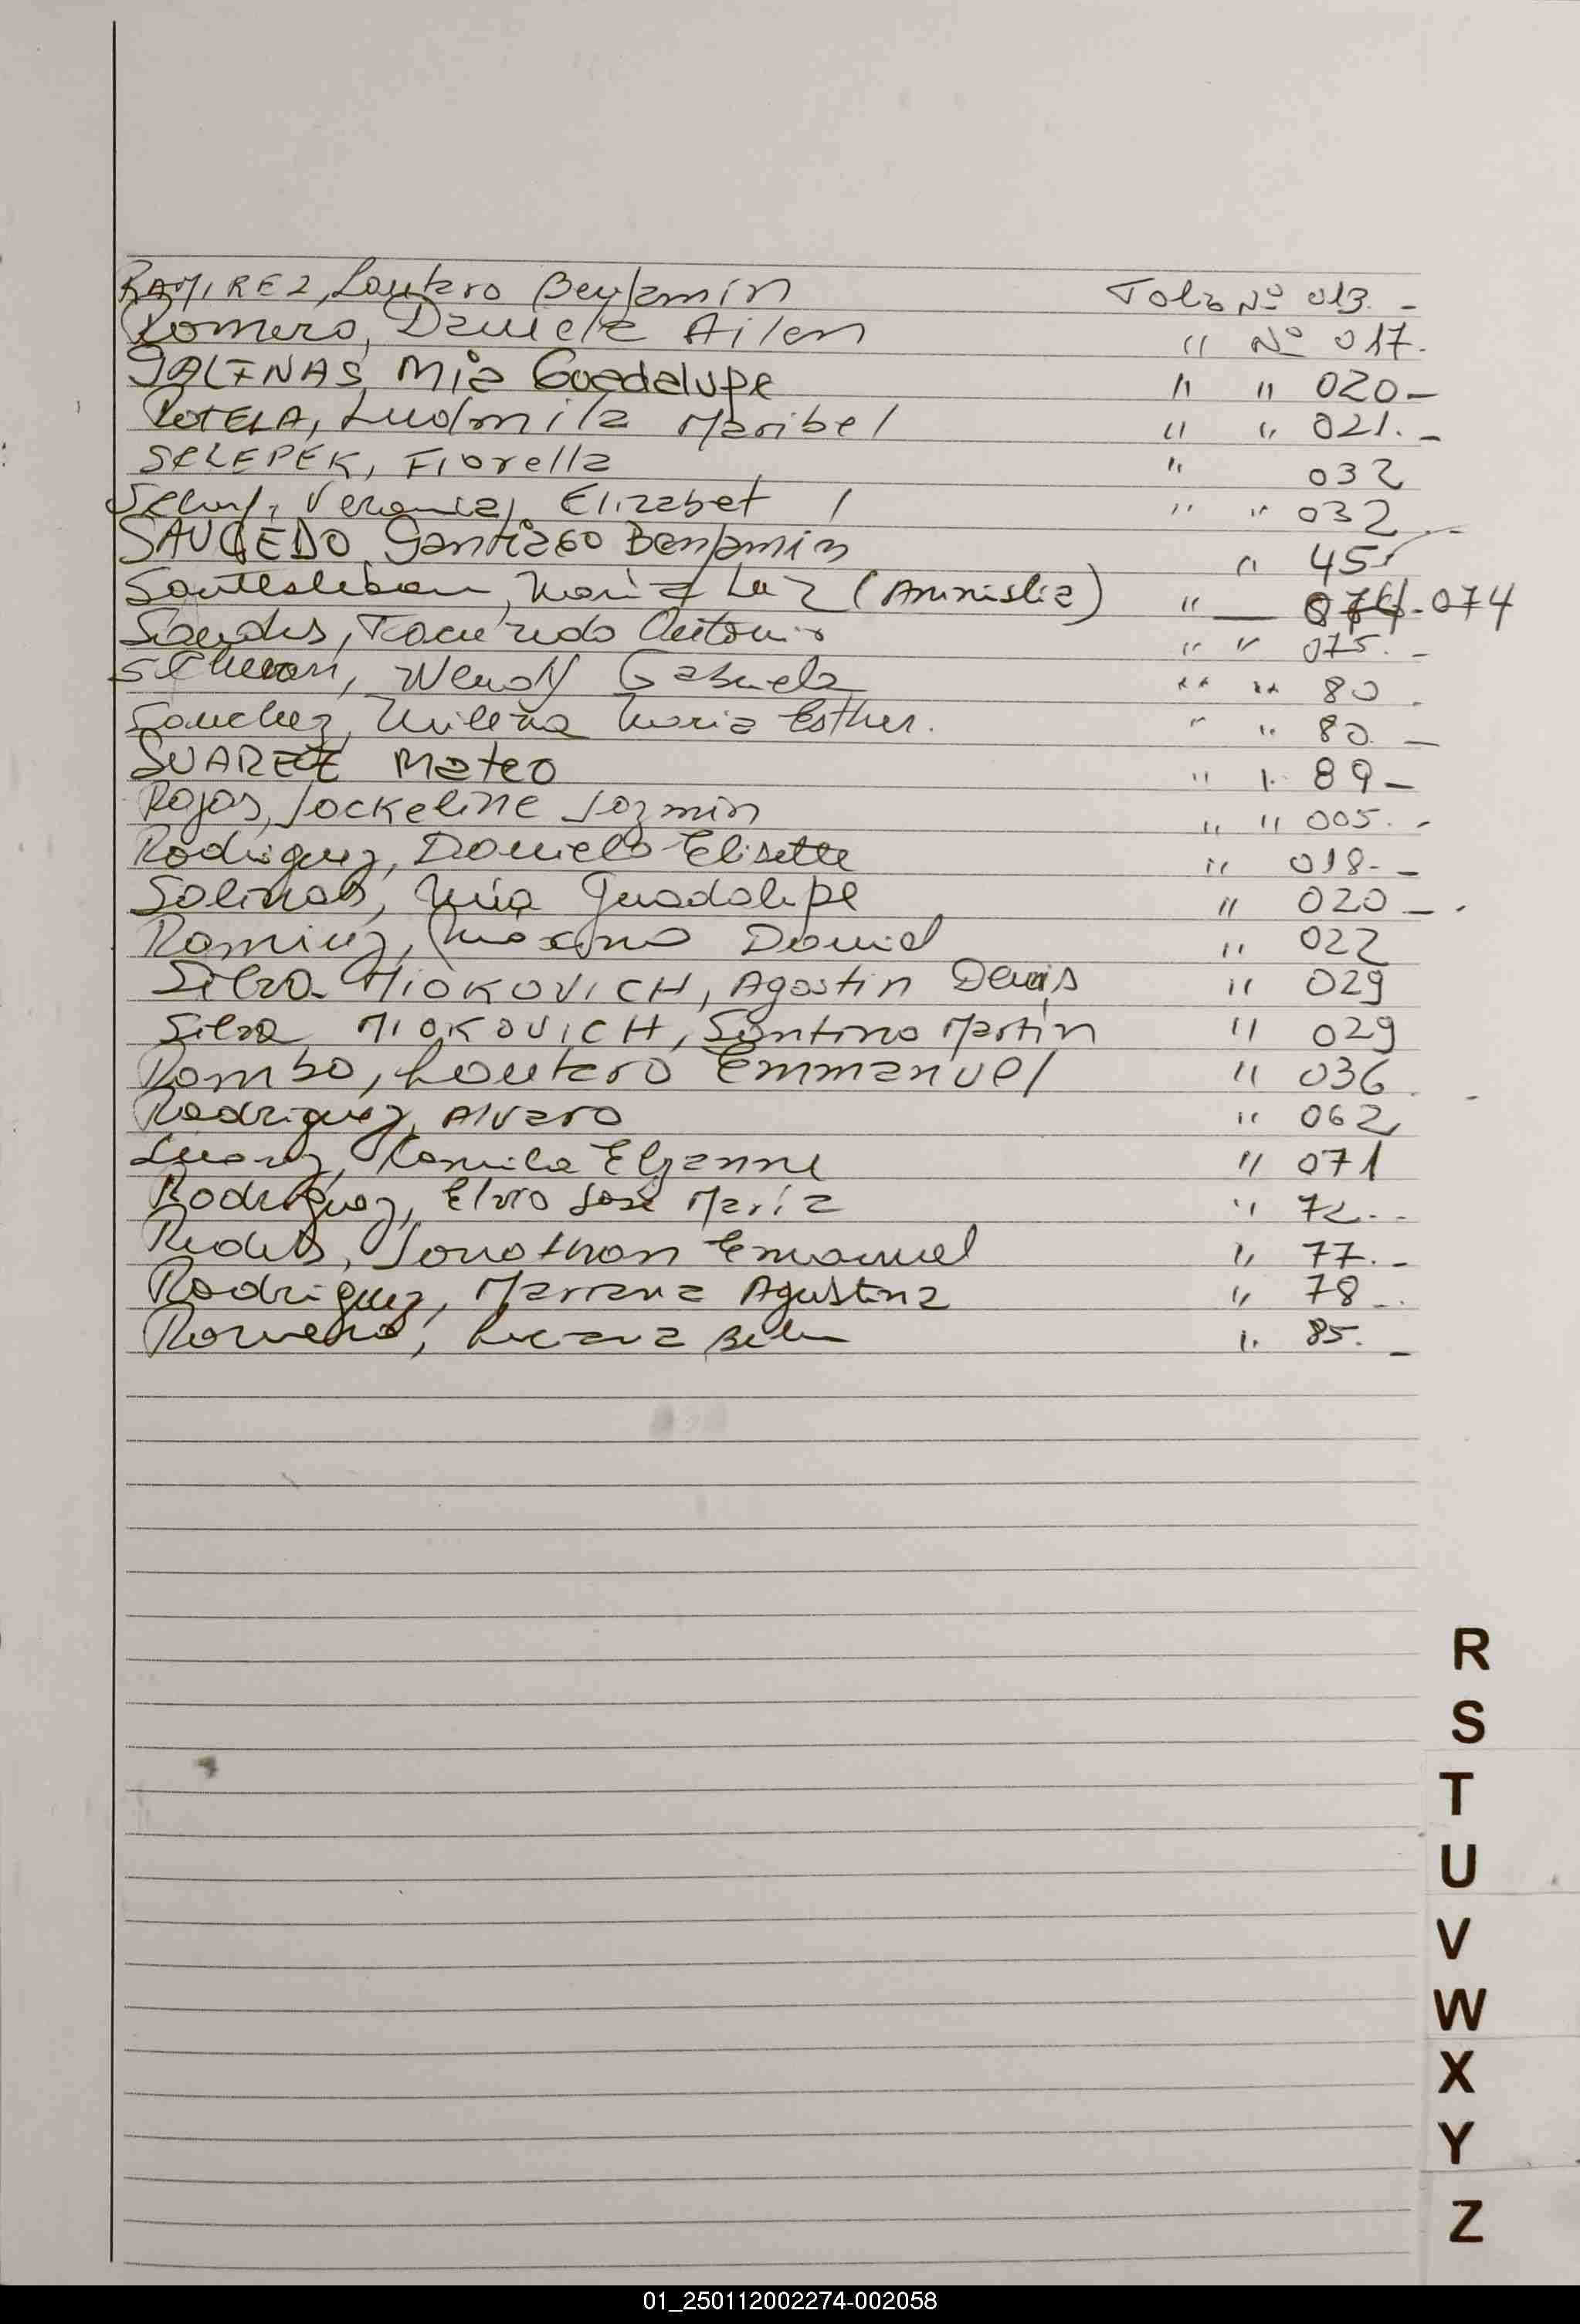 RAMIREZ, Lautaro Benjamin Folio Nº 013. -
Romero, Daniela Ailen " Nº 017.
SALINAS, Mia Guadalupe " " 020 -
ROTELA, Ludmila Maribel " " 021. -
SELEPEK, Fiorella " 032
Veronica, Elizabet " " 032
SAUCEDO Santiago Benjamin " 45
Santesteban, Maria Luz (Amnistia) " — 074
Antonio " " 075. -
Wendy Gabriela " " 80 .
Sanchez, Milena Maria Esther. " " 80. -
SUAREZ Mateo " " 89 -
Rojas, Jockeline Jazmin " " 005. -
Rodriguez, Daniela Elisette " 018. -
Salinas, Mia Guadalupe " 020 -
Ramirez, Maximo David " 022
Silva MIOKOVICH, Agostin Denis " 029
Silva MIOKOVICH, Santino Martin " 029
Rombo, Lautaro Emmanuel " 036
Rodriguez, Alvaro " 062
Kamila " 071
Rodriguez, Elvio José María " 72. -
Jonathan Emanuel " 77. -
Rodriguez, Mariana Agustina " 78 -
Romero, Luciana Belen " 85. -
R
S
T
U
V
W
X
Y
Z
01_250112002274-002058